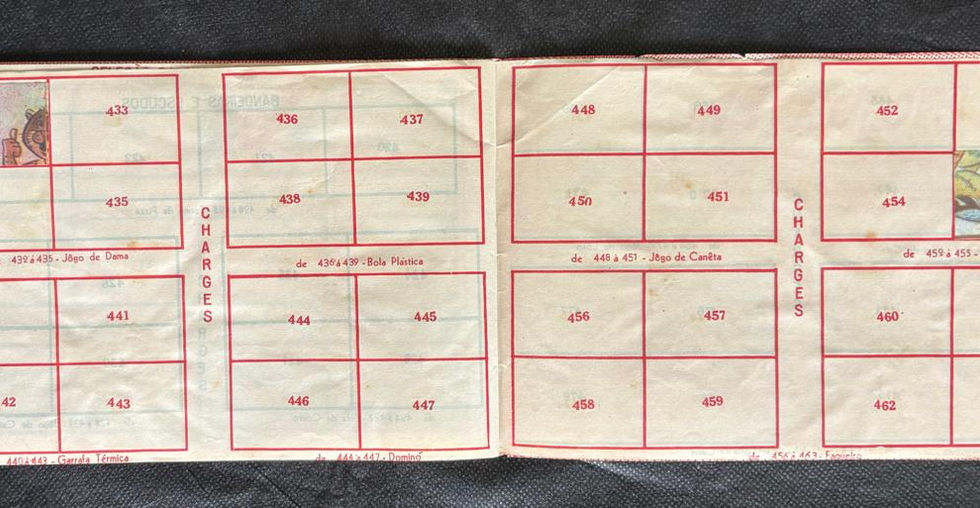 433
435
432 á 435 - Jôgo de Dama
441
42
443
440 á 443 - Garrafa Térmica
CHARGES
436
437
438
439
de 436 á 439 - Bola Plástica
444
445
446
447
de 444 à 447 - Dominó
448
449
450
451
de 448 à 451 - Jôgo de Canêta
456
457
458
459
de 456 à 463 - Faqueiro
CHARGES
452
454
de 452 à 455 -
460
462